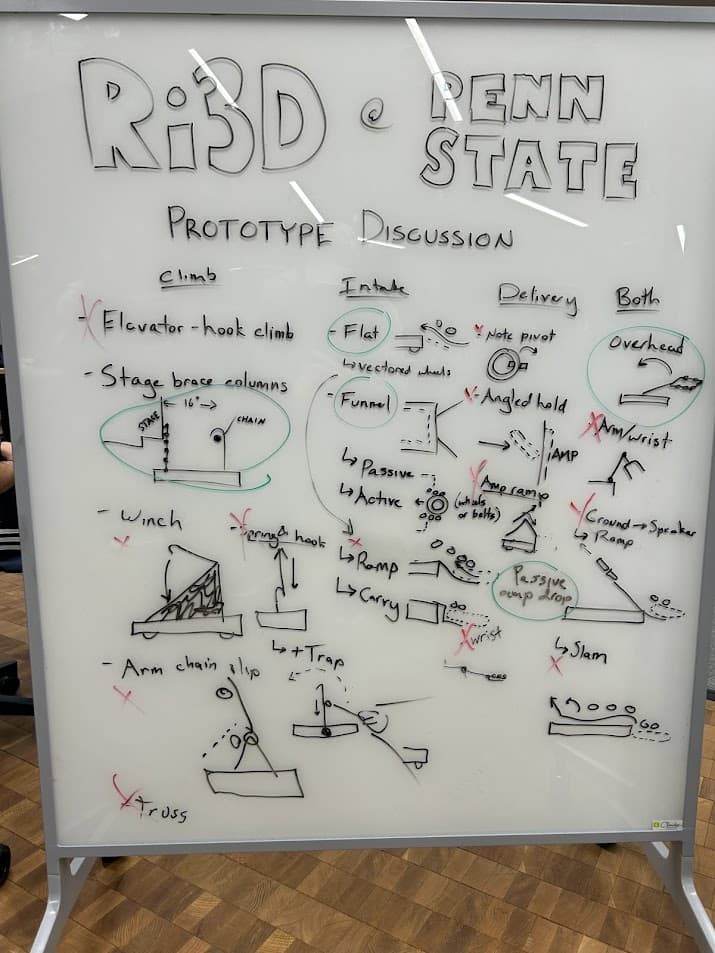 Ri3D @ PENN
STATE
PROTOTYPE DISCUSSION
Climb
X Elavator-hook climb
- Stage brace columns
STAGE
16"
CHAIN
- Winch
X
X Spring & hook
↳ + Trap
- Arm chain slip
X
X Truss
Intake
- Flat
↳ vectored wheels
- Funnel
↳ Passive
↳ Active
(wheels
or belts)
X
↳ Ramp
↳ Carry
Delivery
X Note pivot
X - Angled hold
AMP
X Amp ramp
Passive
amp drop
X wrist
Both
Overhead
X Arm/wrist
X Ground → Speaker
↳ Ramp
↳ Slam
X